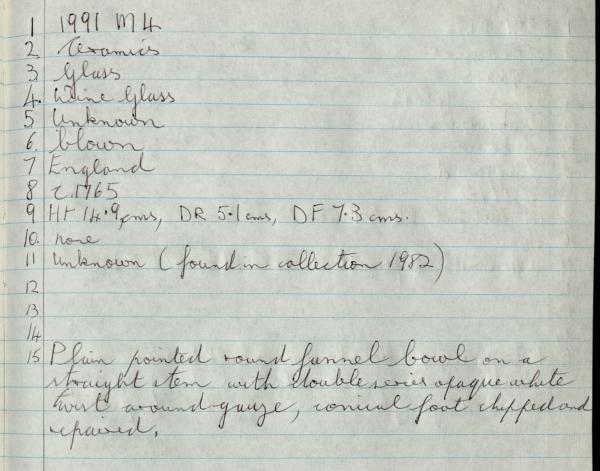 1 1991 M 4
2 Ceramics
3 Glass
4. Wine Glass
5 Unknown
6. blown
7 England
8 c.1765
9 HT 14.9cms, DR 5.1cms, DF 7.3 cms.
10. none
11 Unknown (found in collection 1982)
12
13
14
15 Plain pointed round funnel bowl on a
straight stem with double series opaque white
twist around gauze, conical foot chipped and
repaired.